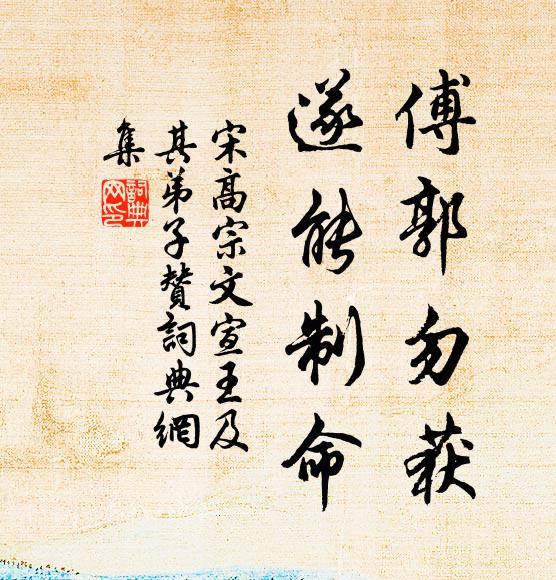 傅郭勿获
遂能制命
宋高宗文宣王及
其弟子赞詞典網
集
詞典
网印